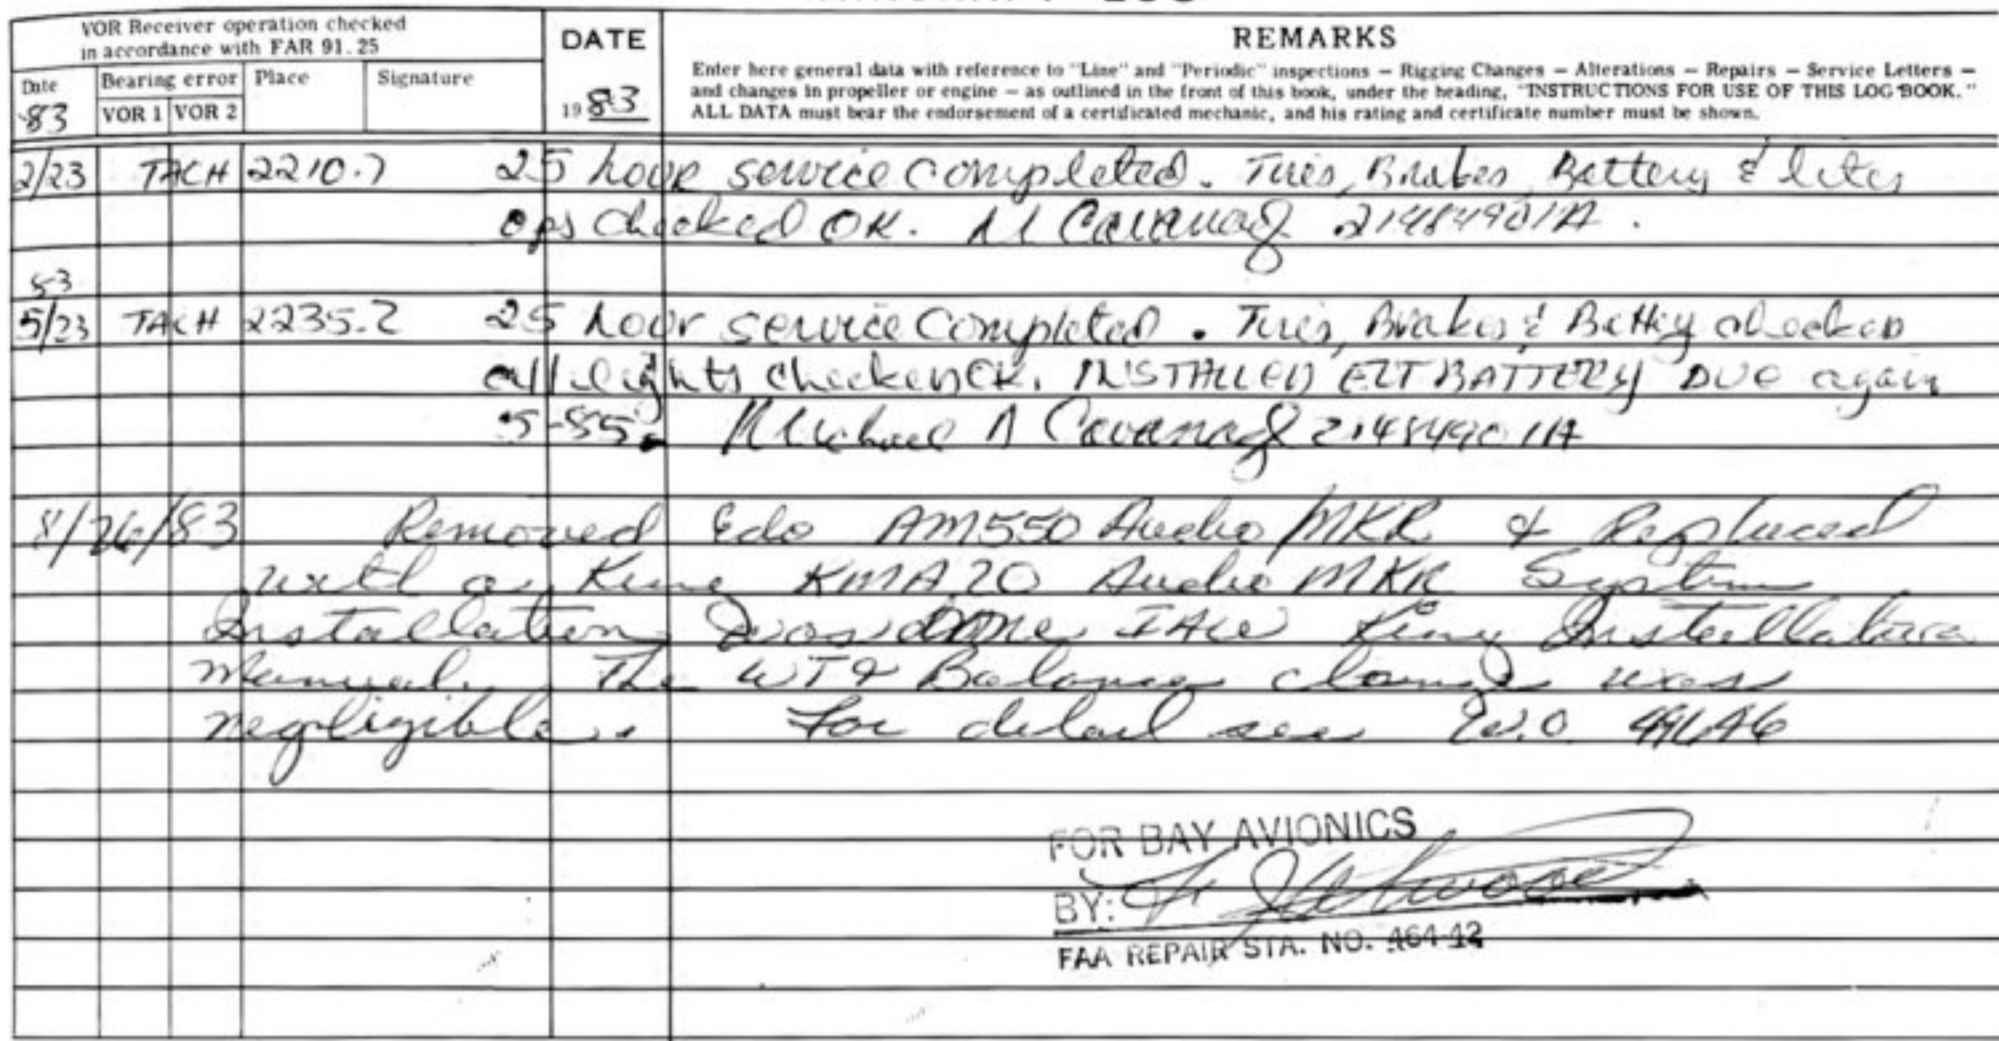 VOR Receiver operation checked
in accordance with FAR 91.25
Date Bearing error Place Signature
83 VOR 1 VOR 2
DATE
1983
REMARKS
Enter here general data with reference to "Line" and "Periodic" inspections — Rigging Changes — Alterations — Repairs — Service Letters —
and changes in propeller or engine — as outlined in the front of this book, under the heading, "INSTRUCTIONS FOR USE OF THIS LOG BOOK."
ALL DATA must bear the endorsement of a certificated mechanic, and his rating and certificate number must be shown.
2/23 TACH 2210.7 25 hour service completed. Tires, Brakes, Battery & lites
ops checked OK. M Cavanagh 2148490 IA.
83
5/23 TACH 2235.2 25 hour service completed. Tires, Brakes & Battery checked
all lights checked OK. INSTALLED ELT BATTERY DUE again
5-85. Michael A Cavanagh 2148490 IA
8/26/83 Removed Edo AM550 Audio/MKR & Replaced
with a King KMA20 Audio MKR System
Installation was done IAW King Installation
Manual. The WT & Balance change was
negligible. For detail see W.O.
FOR BAY AVIONICS
BY:
FAA REPAIR STA. NO. 464-42